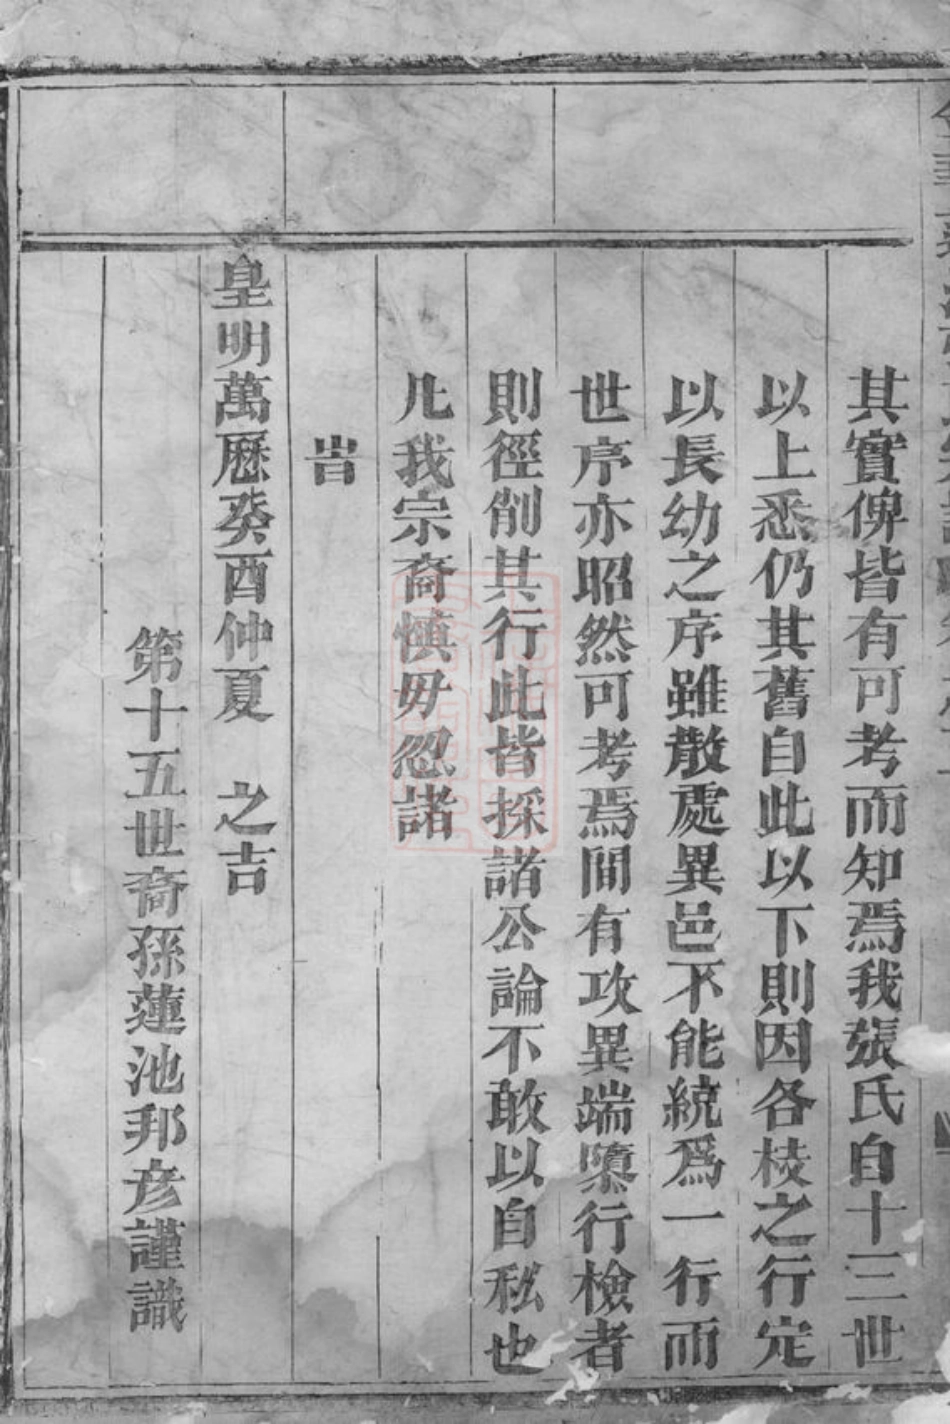 其實俾皆有可考而知焉我張氏自十三世
以上悉仍其舊自此以下則因各枝之行定
以長幼之序雖散處異邑不能統爲一行而
世序亦昭然可考焉間有攻異端隳行檢者
則徑削其行此皆採諸公論不敢以自私也
凡我宗裔慎毋忽諸
旹
皇明萬厯癸酉仲夏　之吉
第十五世裔孫蓮池邦彦謹識